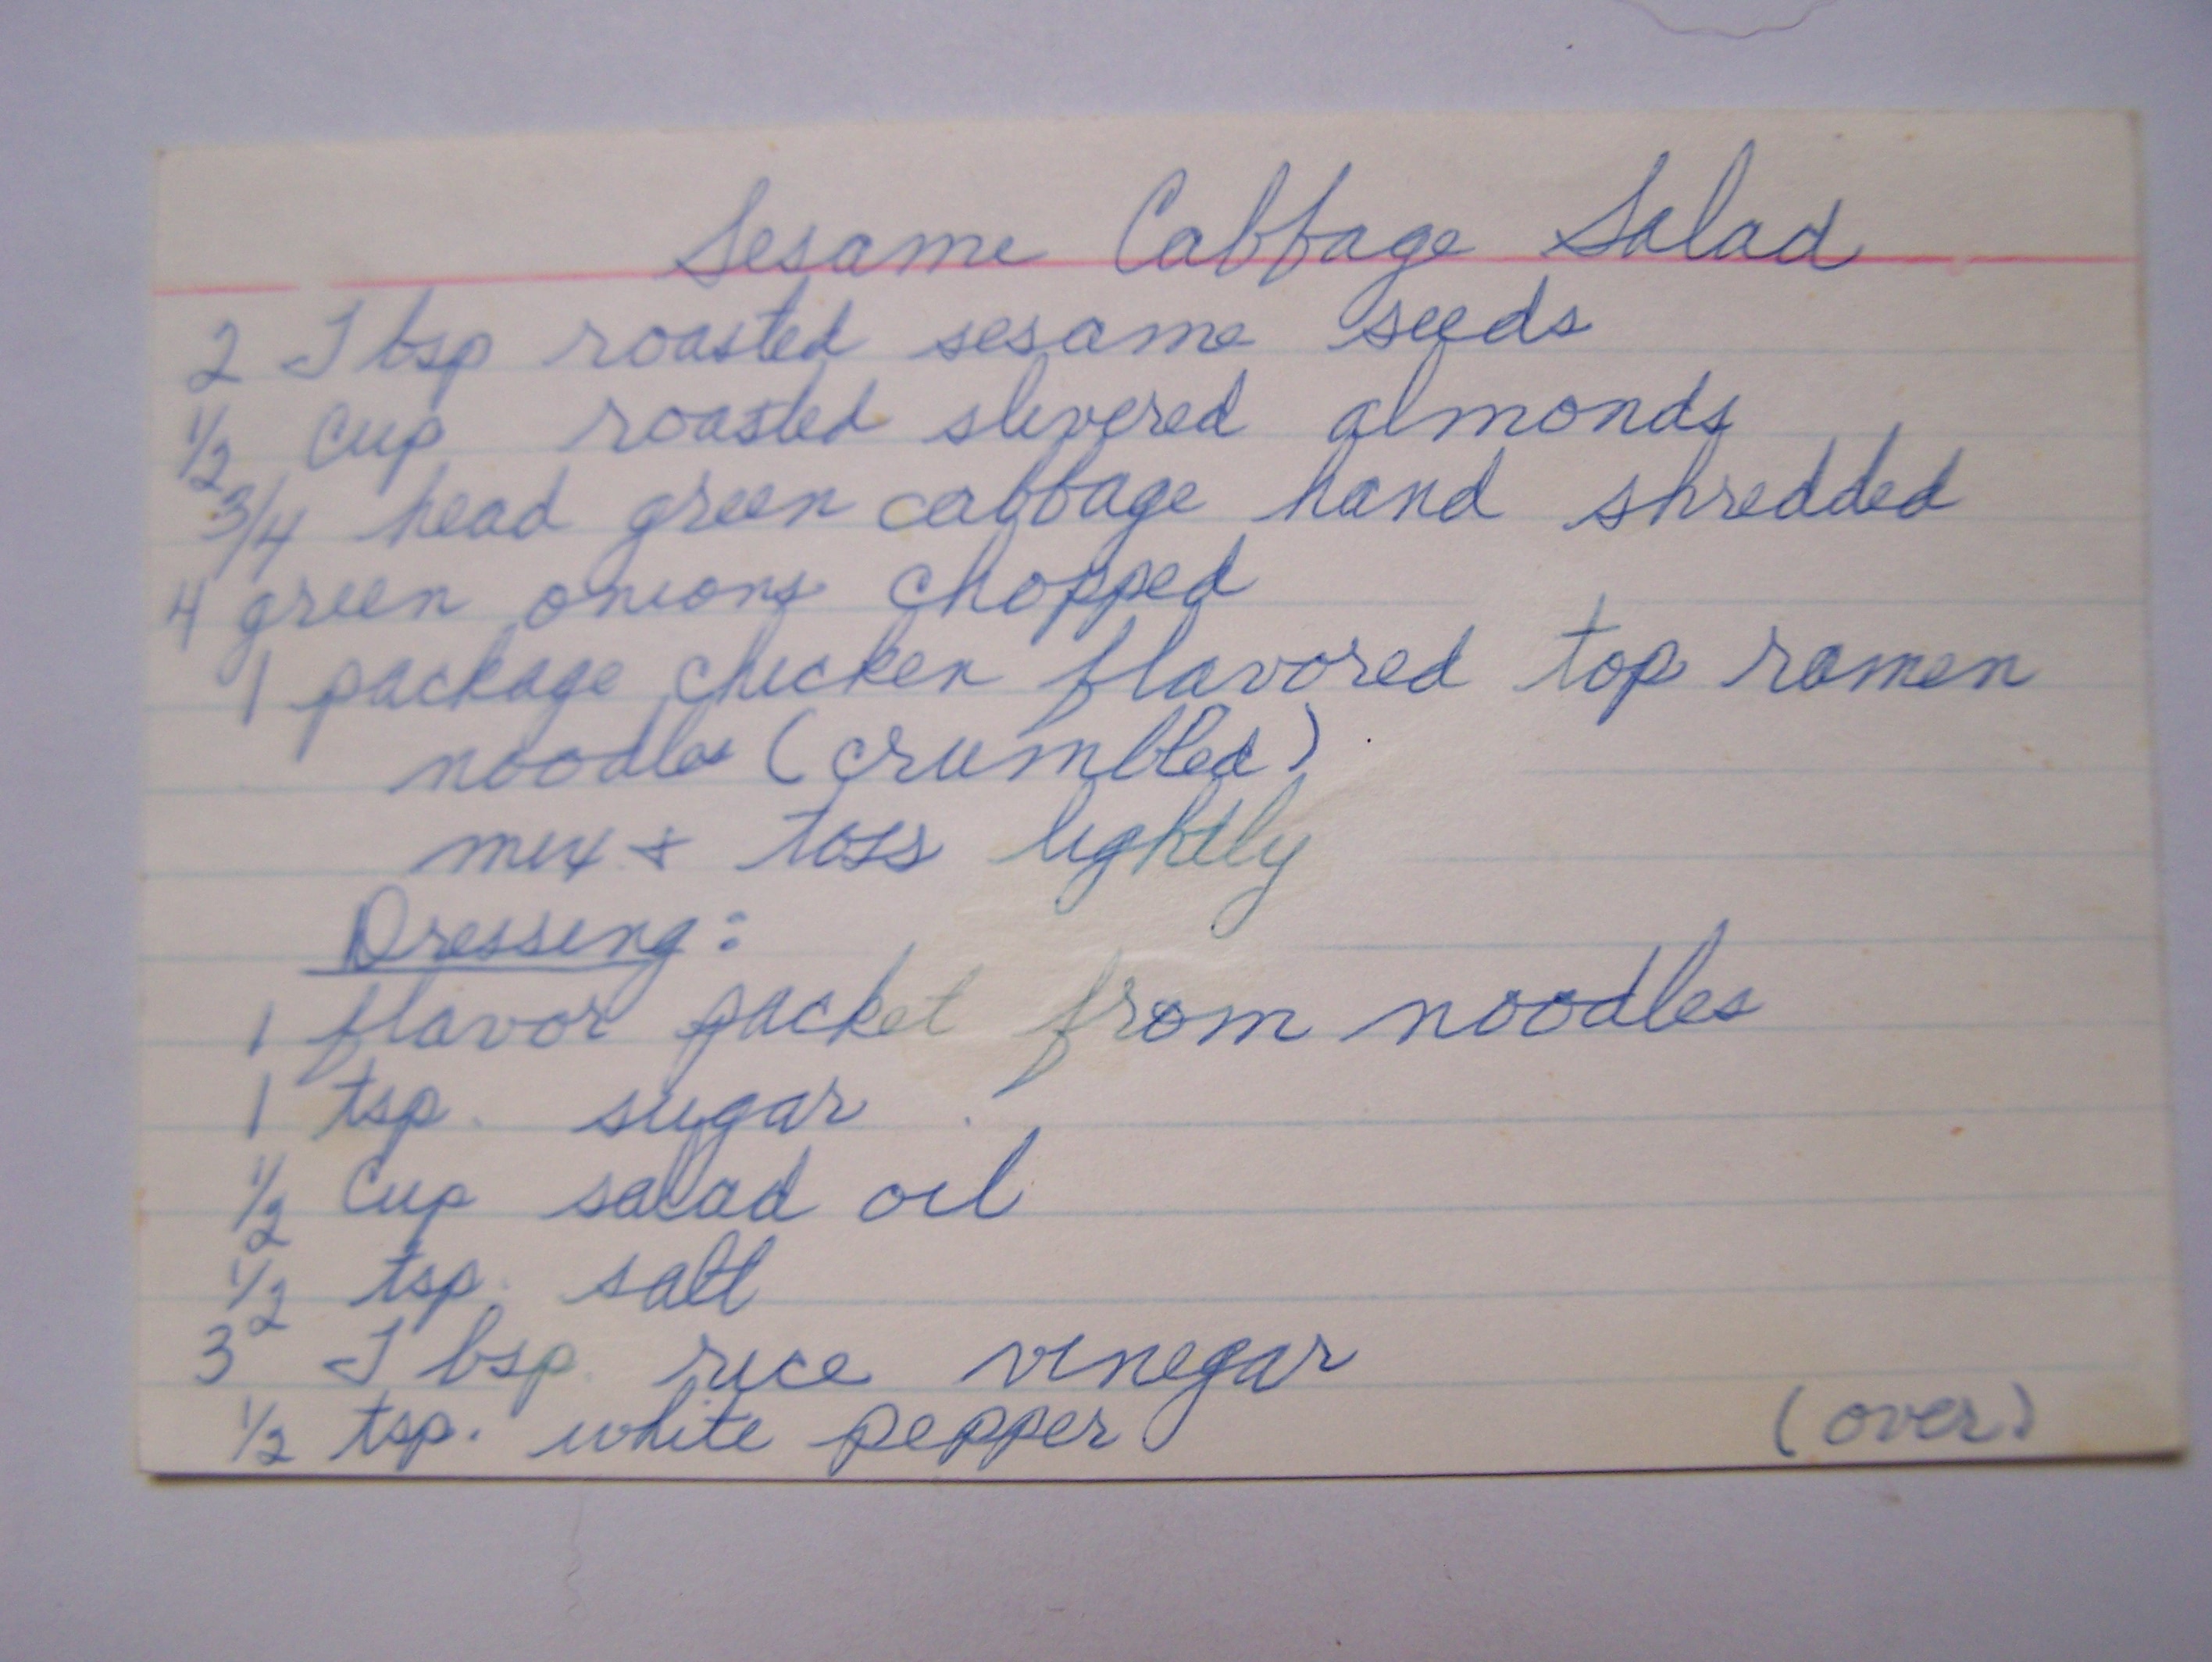 Sesame Cabbage Salad
2 Tbsp roasted sesame seeds
1/2 Cup roasted slivered almonds
3/4 head green cabbage hand shredded
4 green onions chopped
1 package chicken flavored top ramen
noodles (crumbled)
mix + toss lightly
Dressing:
1 flavor packet from noodles
1 tsp. sugar
1/2 Cup salad oil
1/2 tsp. salt
3 Tbsp. rice vinegar
1/2 tsp. white pepper
(over)